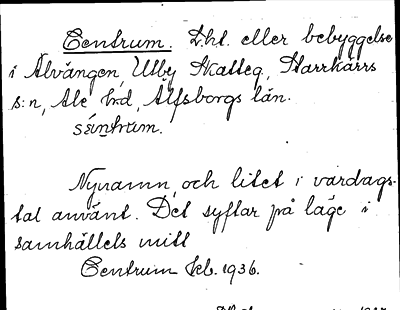 Centrum. Lht. eller bebyggelse
i Älvängen, Utby Skatteg., Starrkärrs
s:n, Ale hrd, Älfsborgs län.
séntrum.
Nynamn, och litet i vardags-
tal använt. Det syftar på läge i
samhällets mitt
Centrum tel. 1936.